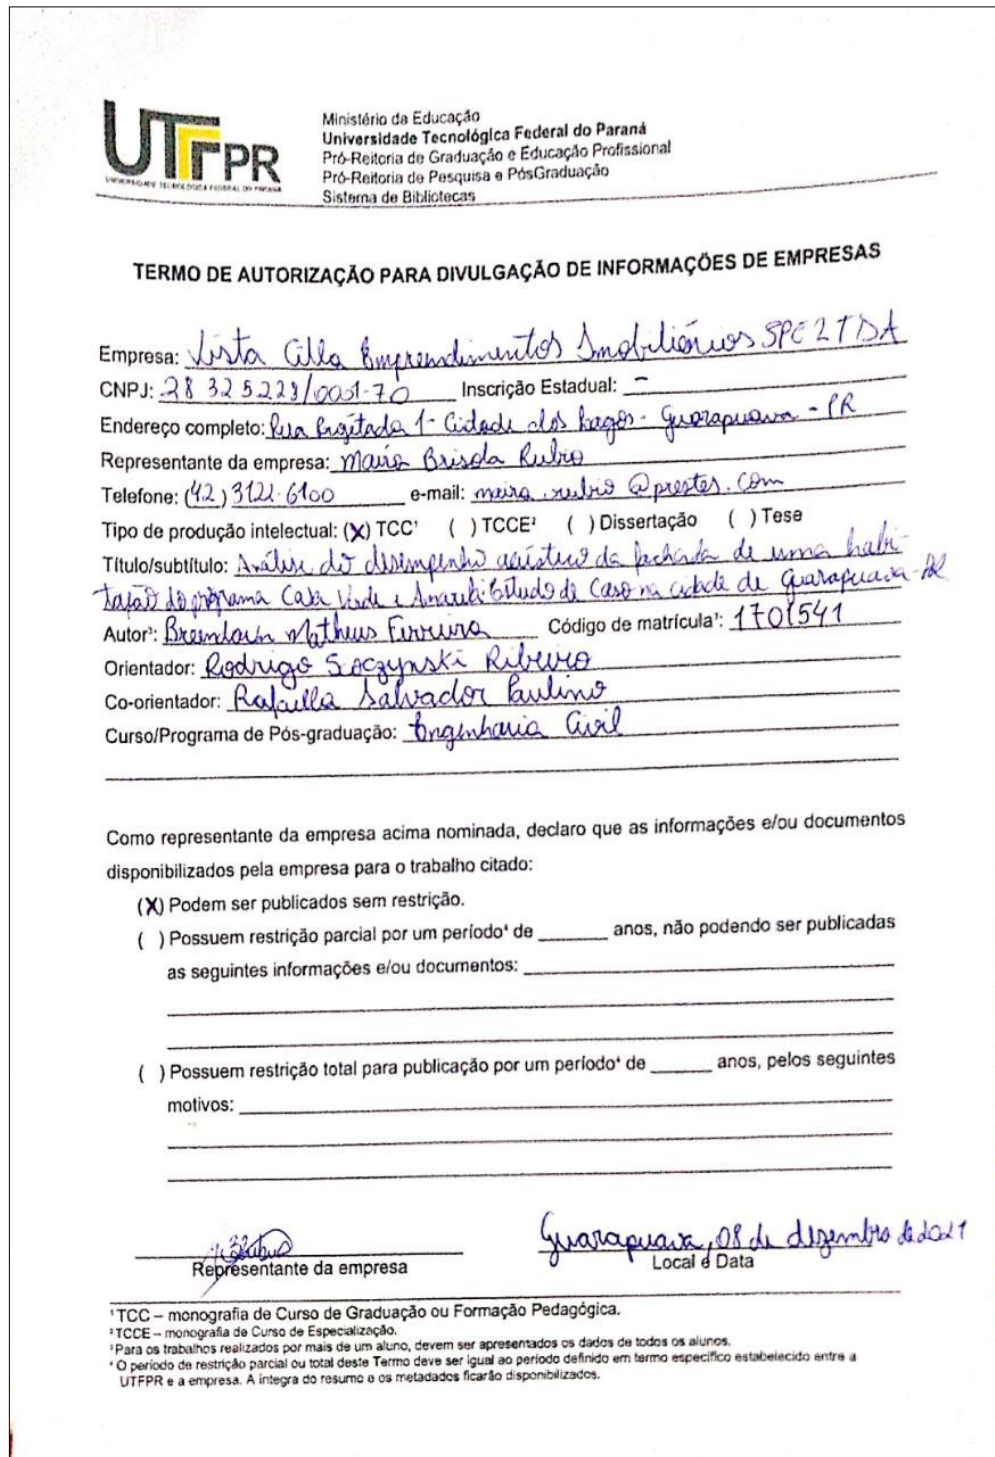 UTFPR
UNIVERSIDADE TECNOLÓGICA FEDERAL DO PARANÁ
Ministério da Educação
Universidade Tecnológica Federal do Paraná
Pró-Reitoria de Graduação e Educação Profissional
Pró-Reitoria de Pesquisa e PósGraduação
Sistema de Bibliotecas
TERMO DE AUTORIZAÇÃO PARA DIVULGAÇÃO DE INFORMAÇÕES DE EMPRESAS
Empresa: Vista Empreendimentos Imobiliários SPE LTDA
CNPJ: 28 325 229/0001-70 Inscrição Estadual: -
Endereço completo: Rua 1 - Cidade dos Lagos - Guarapuava - PR
Representante da empresa: Maira Brisola Rubio
Telefone: (42) 3122-6100 e-mail: maira.rubio@prestes.com
Tipo de produção intelectual: (X) TCC¹ ( ) TCCE² ( ) Dissertação ( ) Tese
Título/subtítulo: Análise do desempenho acústico da fachada de uma habi-
tação do programa Casa Verde e Amarela: Estudo de Caso na cidade de Guarapuava-PR
Autor³: Matheus Ferreira Código de matrícula³: 1701541
Orientador: Rodrigo Scoczynski Ribeiro
Co-orientador: Rafaella Salvador Paulino
Curso/Programa de Pós-graduação: Engenharia Civil
Como representante da empresa acima nominada, declaro que as informações e/ou documentos
disponibilizados pela empresa para o trabalho citado:
(X) Podem ser publicados sem restrição.
( ) Possuem restrição parcial por um período⁴ de _______ anos, não podendo ser publicadas
as seguintes informações e/ou documentos:
( ) Possuem restrição total para publicação por um período⁴ de ______ anos, pelos seguintes
motivos:
Guarapuava, 08 de dezembro de 2021
Representante da empresa Local e Data
¹TCC – monografia de Curso de Graduação ou Formação Pedagógica.
²TCCE – monografia de Curso de Especialização.
³Para os trabalhos realizados por mais de um aluno, devem ser apresentados os dados de todos os alunos.
⁴ O período de restrição parcial ou total deste Termo deve ser igual ao período definido em termo específico estabelecido entre a
UTFPR e a empresa. A íntegra do resumo e os metadados ficarão disponibilizados.